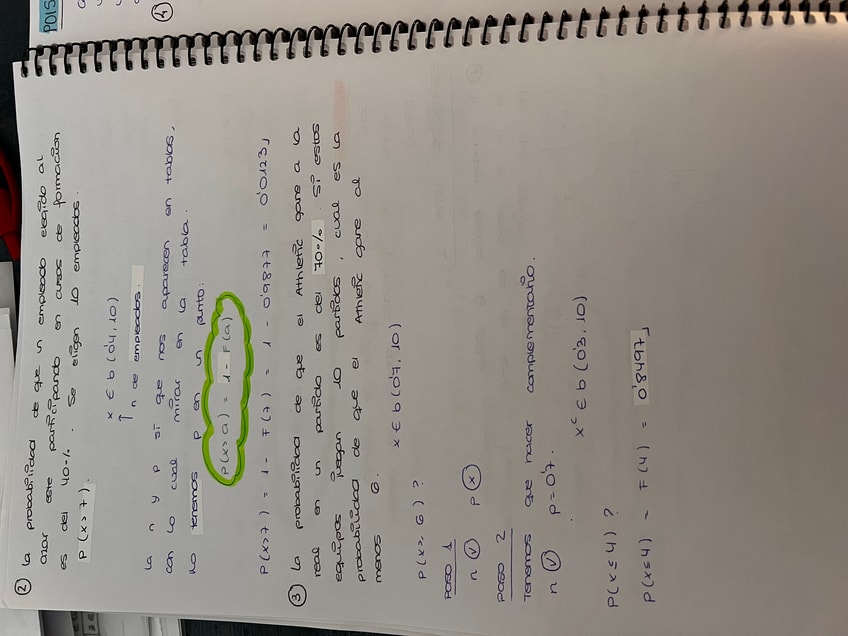 ② La probabilidad de que un empleado elegido al
azar este participando en cursos de formación
es del 40%. Se eligen 10 empleados.
P(x>7).
x ∈ b(0'4, 10)
↑ n de empleados.
La n y p si que nos aparecen en tablas,
con lo cual mirar en la tabla.
No tenemos p en un punto:
P(x>a) = 1 - F(a)
P(x>7) = 1 - F(7) = 1 - 0'9877 = 0'0123
③ La probabilidad de que el Athletic gane a la
real en un partido es del 70%. Si estos
equipos juegan 10 partidos, cual es la
probabilidad de que el Athletic gane al
menos 6.
x ∈ b(0'7, 10)
P(x≥6)?
PASO 1
n ✓ p ⓧ
PASO 2
Tenemos que hacer complementario.
n ✓ p=0'7.
xᶜ ∈ b(0'3, 10)
P(x≤4)?
P(x≤4) = F(4) = 0'8497
PDIS
④